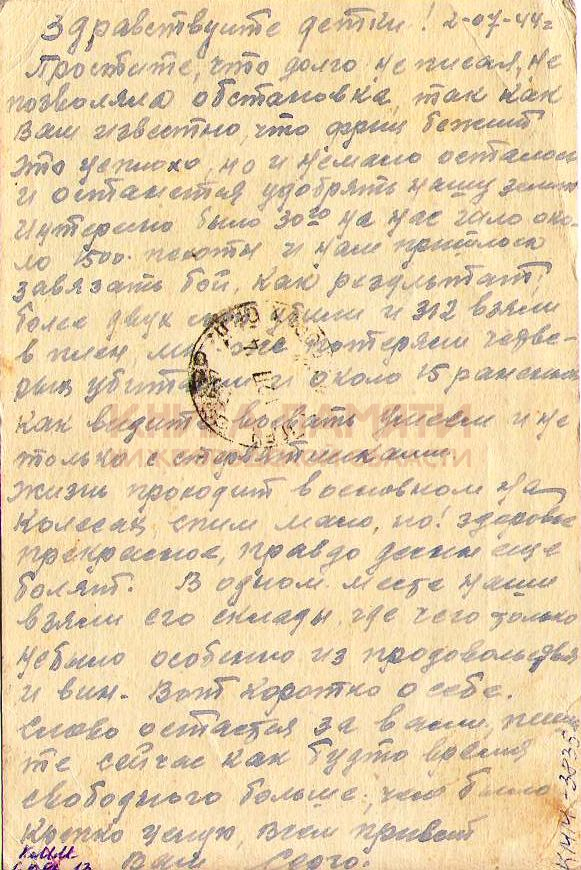 Здравствуите детки! 2-07-44г
Простите, что долго не писал, не
позволяла обстановка, так как
Вам известно, что фриц бежит
это неплохо, но и немало осталось
и останется удобрять нашу землю
Интересно было 30го на нас шло око-
ло 1500 пехоты и нам пришлось
завязать бой, как результат,
более двух убили и 312 взяли
в плен, мы потеряли четве-
рых убитыми и около 15 ранеными
как видите воевать умеем и не
только с стервятниками
жизнь проходит в основном на
колесах, спим мало, но! здоровье
прекрасное, правдо десны еще
болят. В одном месте наши
взяли его склады, где чего только
небыло особенно из продовольствия
и вин. Вот коротко о себе.
Слово остается за вами, пиши-
те сейчас как будто время
свободного больше, чем было
Крепко целую, Всем привет
Ваш Серго.
КНИГА ПАМЯТИ
ОБЛАСТИ
КММ-3835